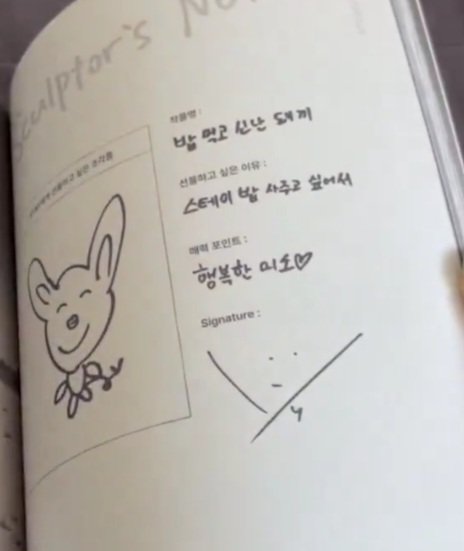 Sculptor's No
선물하고 싶은 조각품
작품명 :
밥 먹고 신난 돼끼
선물하고 싶은 이유 :
스테이 밥 사주고 싶어서
매력 포인트 :
행복한 미소♡
Signature :